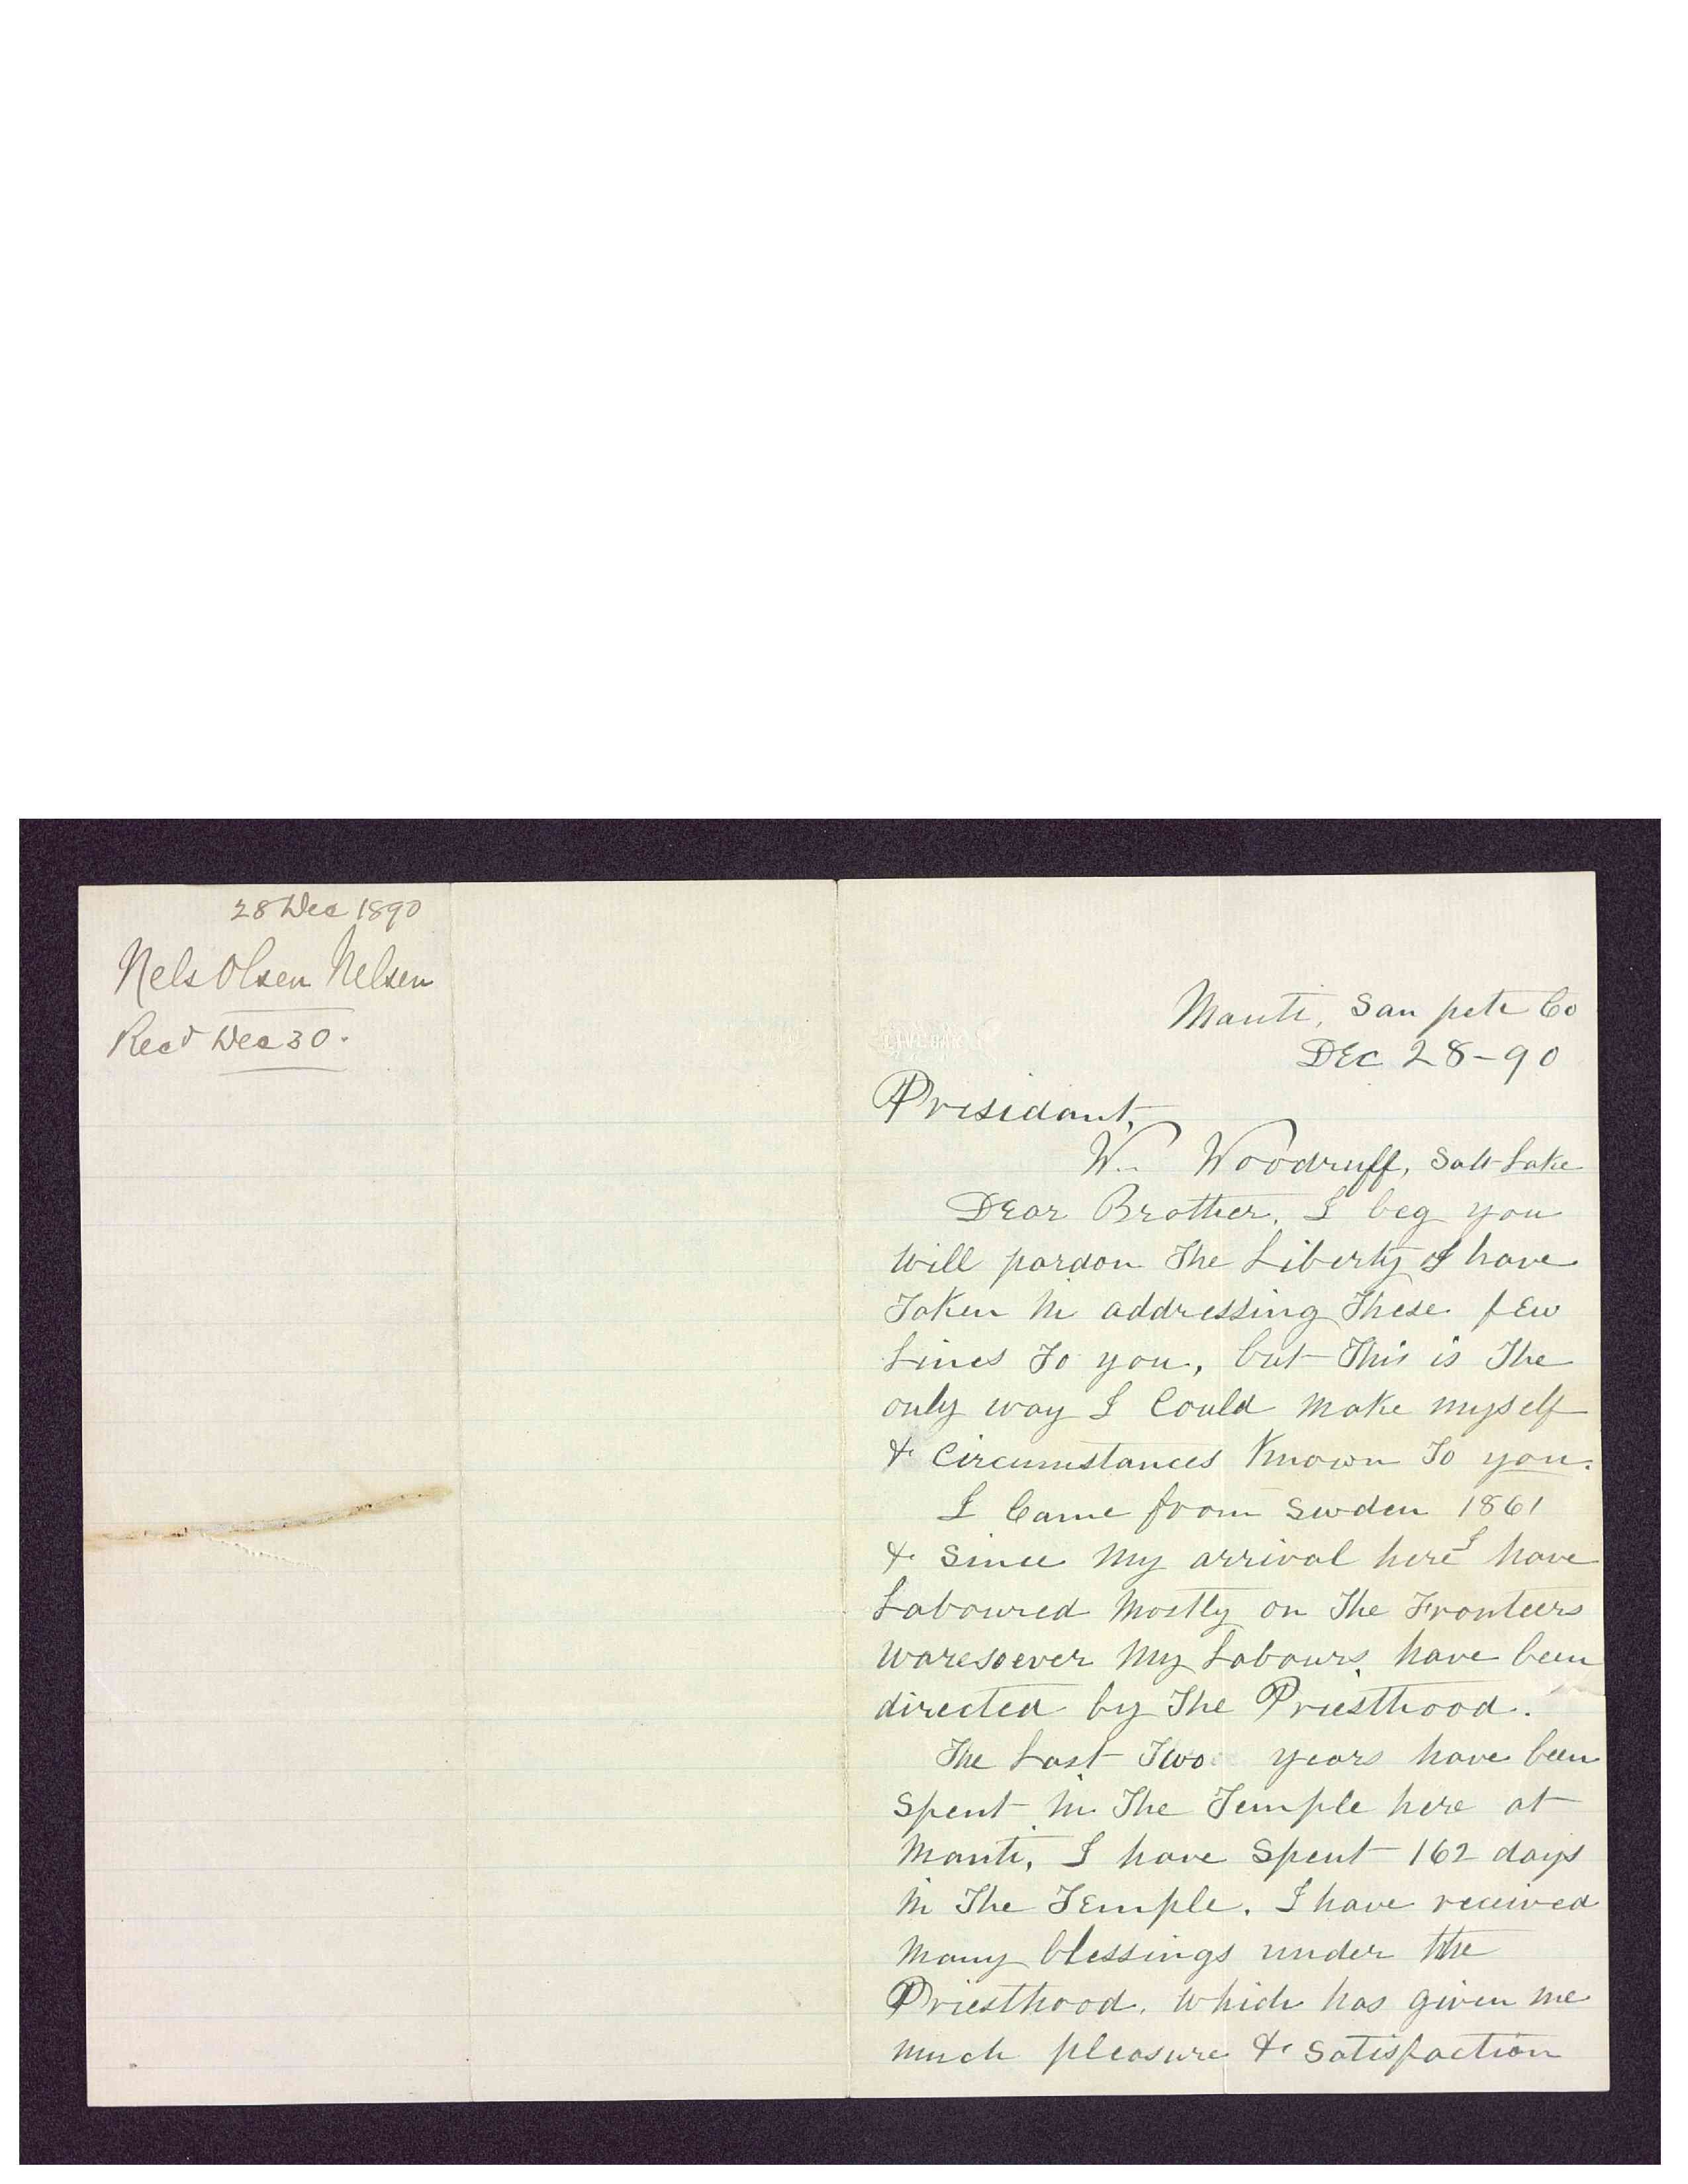 28 Dec 1890
Nels Olsen Nelsen
Recd Dec 30.
Manti, San pete Co
DEc 28-90
Presidant,
W. Woodruff, Salt Lake
DEar Brother, I beg you
will pardon The Liberty I have
Taken in addressing These fEw
Lines To you, but This is The
only way I Could make myself
& Circumstances Known To you.
I Came from Sweden 1861
& Since my arrival here I have
Laboured mostly on The Fronteers
waresoever my Labours have been
directed by The Priesthood.
The Last Two years have been
Spent in The Temple here at
Manti, I have Spent 162 days
in The TEmple. I have received
many blessings under the
Priesthood, which has given me
much pleasure & Satisfaction